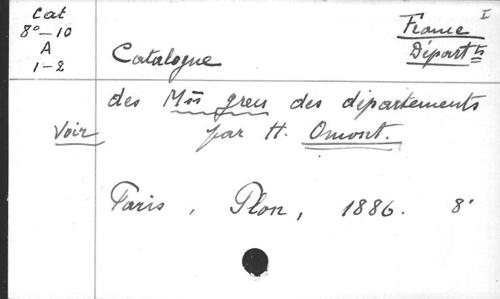 Cat
8°-10
A
1-2
France I
Départts
Catalogue
des Mss grecs des départements
Voir
par H. Omont.
Paris, Plon, 1886. 8°